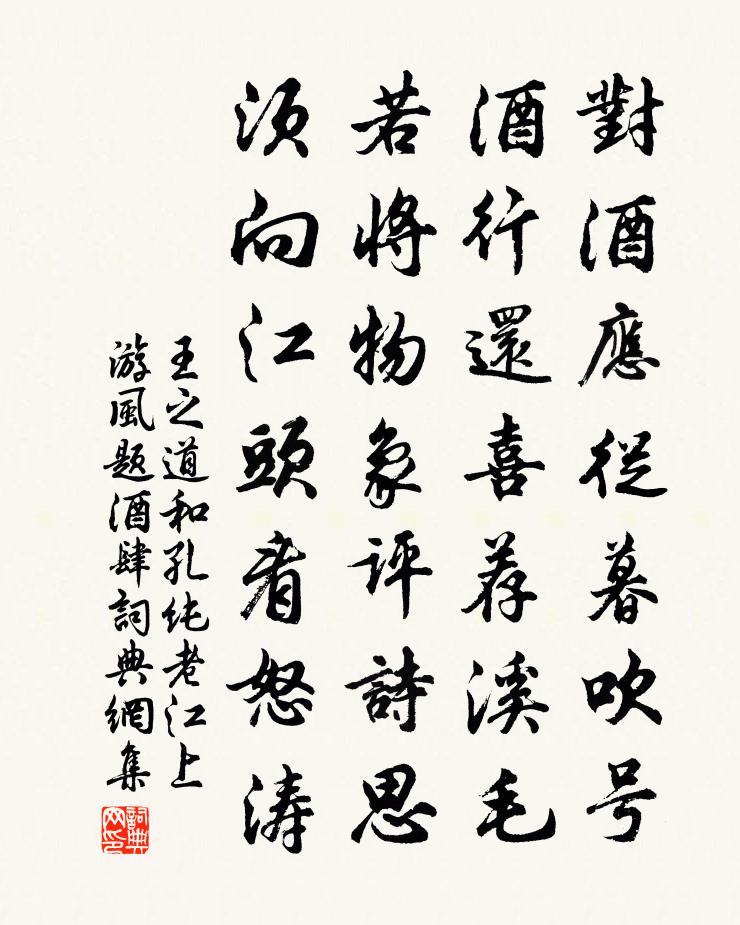 對酒應從暮吹号
酒行還喜荐溪毛
若將物象評詩思
须向江頭看怒涛
王之道和孔纯老江上
游風题酒肆詞典網集
詞典
网印